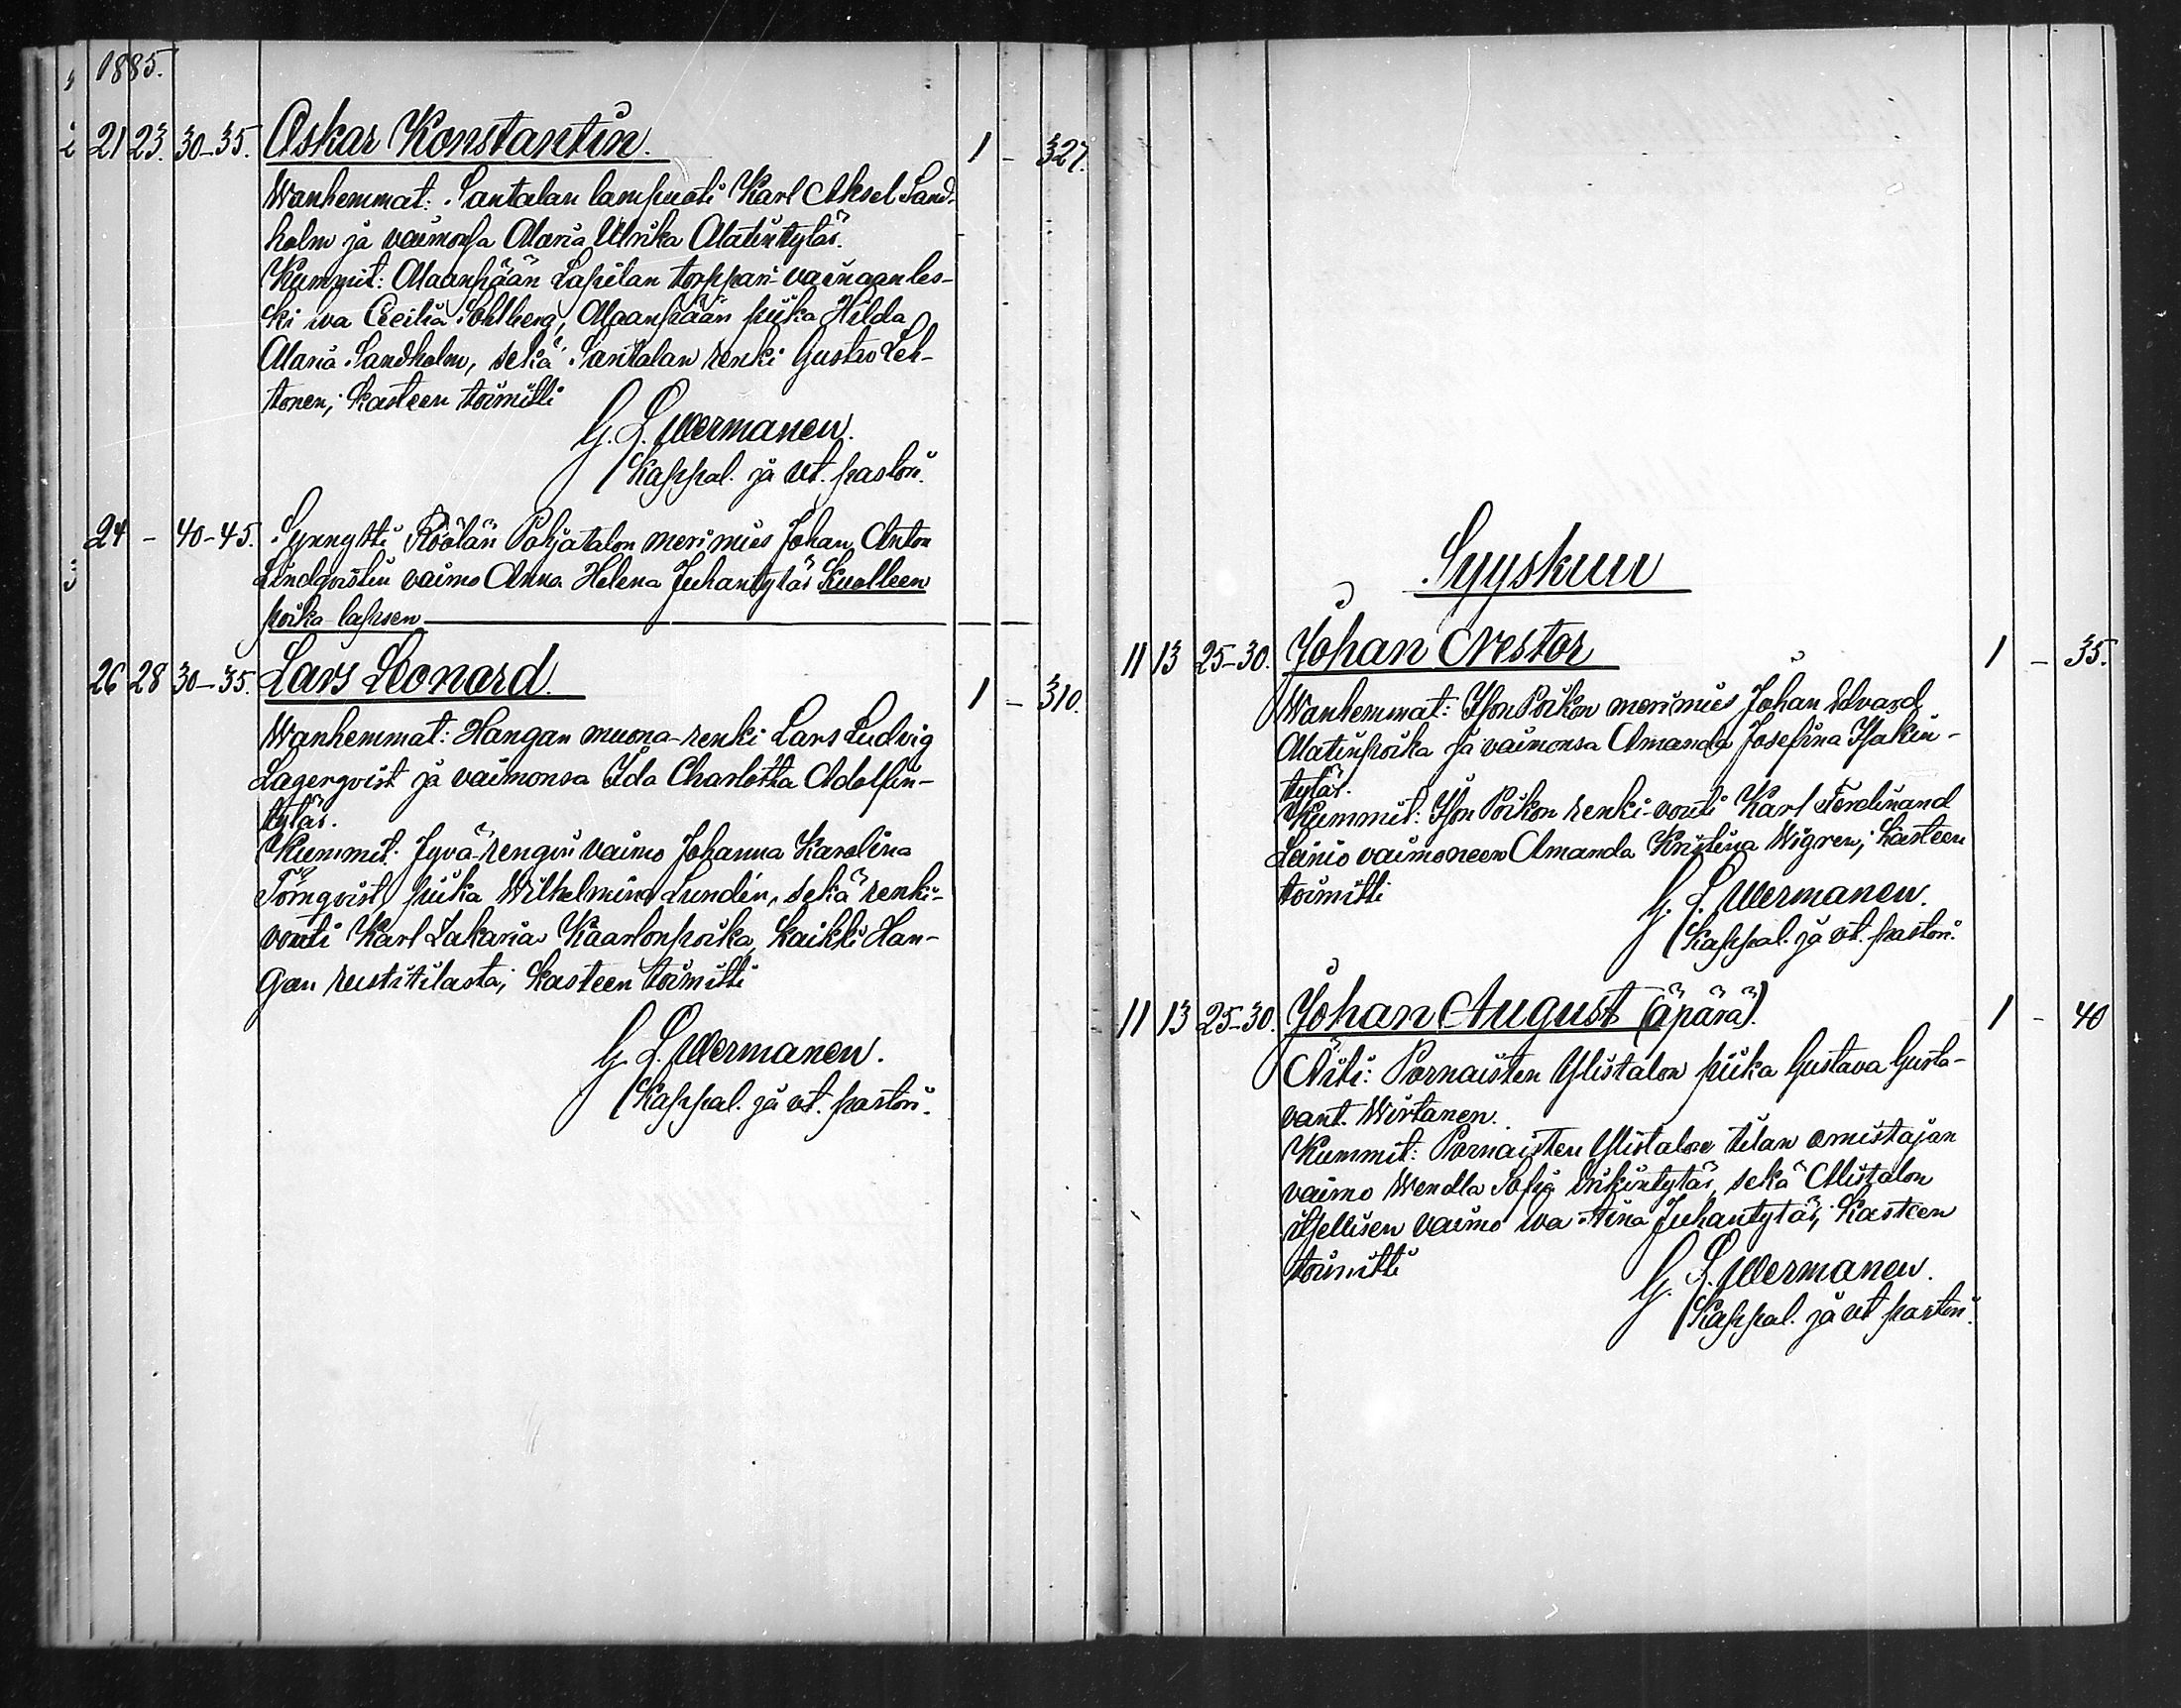 1885.
21 23. 30-35. Oskar Konstantin. 1 - 327.
Wanhemmat: Santalan lampuoti Karl Aksel Sand-
holm ja vaimonsa Maria Ulrika Matintytär.
Kummit: Maanpään Lapilan torppari-vainaan les-
ki wa Cecilia Sohlberg, Maanpään piika Hilda
Maria Sandholm, sekä Santalan renki Gustav Leh-
tonen; kasteen toimitti
G. L. Wermanen.
Kappal. ja vt. pastori.
24 - 40-45. Synnytti Röölän Pohjatalon merimies Johan Anton
Lindqvistin vaimo Anna Helena Juhantytär kuolleen
poika-lapsen
26 28 30-35. Lars Leonard. 1 - 310.
Wanhemmat: Hangan muona-renki Lars Ludvig
Lagerqvist ja vaimonsa Ida Charlotta Adolfin-
tytär.
Kummit: Jyvä-rengin vaimo Johanna Karolina
Törnqvist, piika Wilhelmina Lundén, sekä renki-
vouti Karl Zakaria Kaarlonpoika, kaikki Han-
gan rustitilasta; kasteen toimitti
G. L. Wermanen.
Kappal. ja vt. pastori.
Syyskuu
11 13 25-30. Johan Nestor 1 - 35.
Wanhemmat: Ison Poikon merimies Johan Edvard
Matinpoika ja vaimonsa Amanda Josefina Isakin-
tytär.
Kummit: Ison Poikon renki-vouti Karl Ferdinand
Leinio vaimoneen Amanda Kristina Wigren; kasteen
toimitti
G. L. Wermanen.
Kappal. ja vt. pastori.
11 13 25-30. Johan August (äpärä). 1 - 40
Äiti: Pornaisten Ylistalon piika Gustava Gusta-
vant. Wirtanen.
Kummit: Pornaisten Ylistalon tilan omistajan
vaimo Wendla Sofia Erikintytär, sekä Ylistalon
itsellisen vaimo wa Stina Juhantytär; kasteen
toimitti
G. L. Wermanen.
Kappal. ja vt pastori.